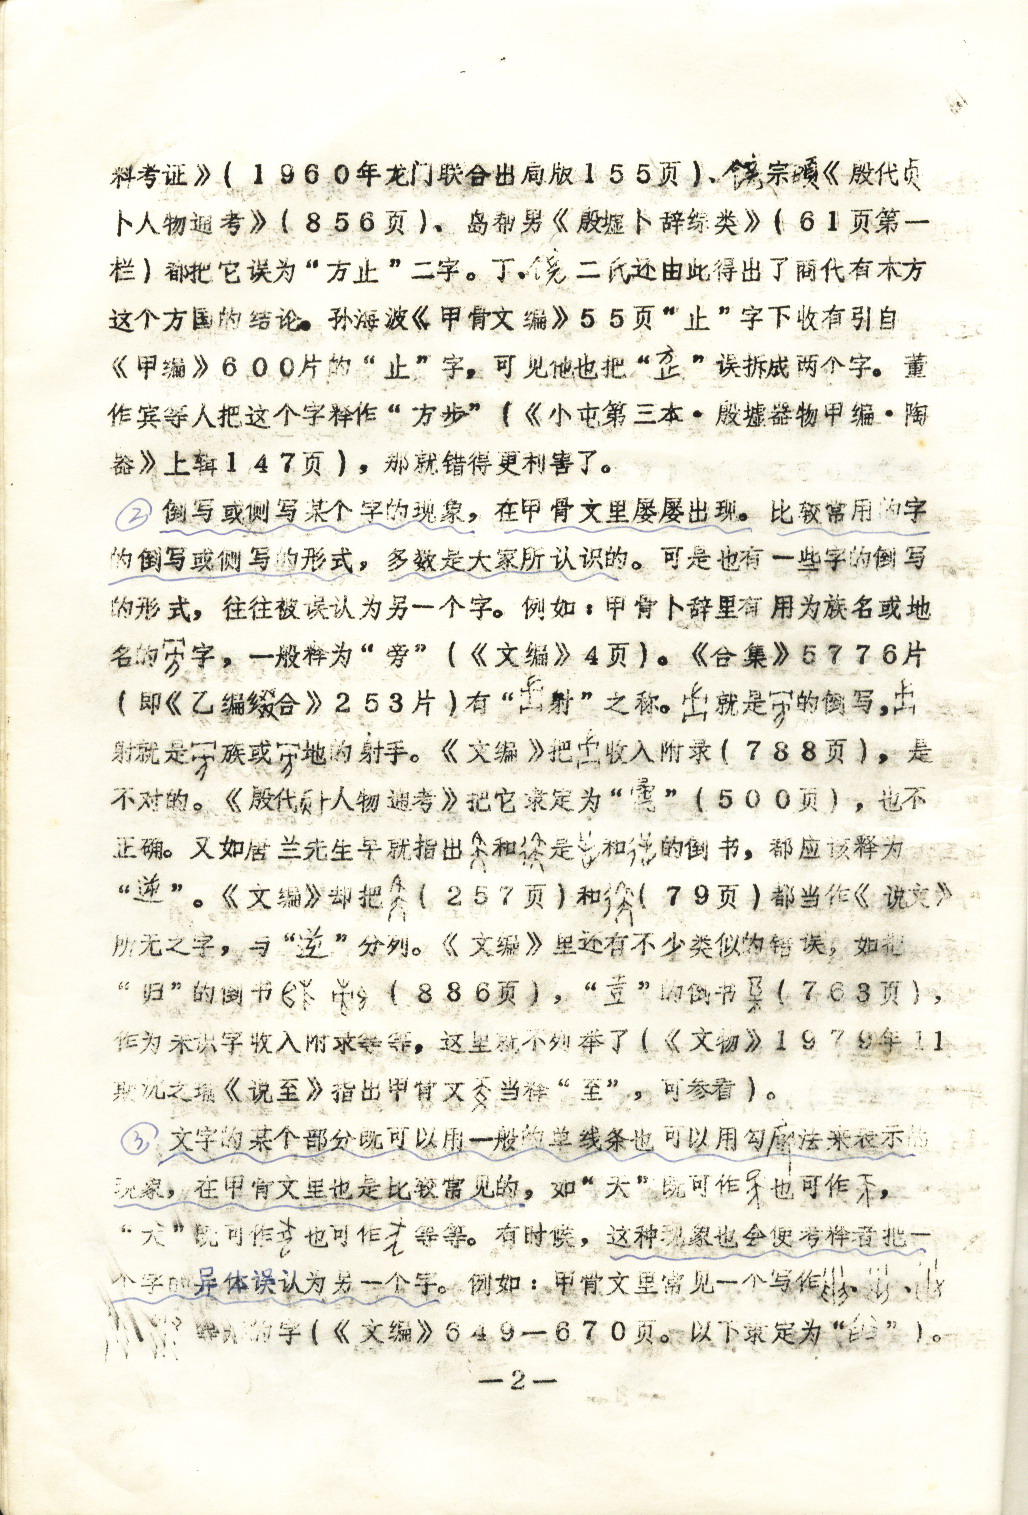 料考证》(1960年龙门联合出局版155页)、饶宗頤《殷代贞
卜人物通考》(856页)、岛邦男《殷墟卜辞综类》(61页第一
栏)都把它误为“方止”二字。丁、饶二氏还由此得出了商代有木方
这个方国的结论。孙海波《甲骨文编》55页“止”字下收有引自
《甲编》600片的“止”字,可见他也把“ ”误拆成两个字。董
作宾等人把这个字释作“方步”(《小屯第三本·殷墟器物甲编·陶
器》上辑147页),那就错得更利害了。
② 倒写或侧写某个字的现象,在甲骨文里屡屡出现。比较常用的字
的倒写或侧写的形式,多数是大家所认识的。可是也有一些字的倒写
的形式,往往被误认为另一个字。例如:甲骨卜辞里有用为族名或地
名的 字,一般释为“旁”(《文编》4页)。《合集》5776片
(即《乙编缀合》253片)有“ 射”之称。 就是 的倒写,
射就是 族或 地的射手。《文编》把 收入附录(788页),是
不对的。《殷代贞卜人物通考》把它隶定为“ ”(500页),也不
正确。又如唐兰先生早就指出 和 是 和 的倒书,都应该释为
“逆”。《文编》却把 (257页)和 (79页)都当作《说文》
所无之字,与“逆”分列。《文编》里还有不少类似的错误,如把
“归”的倒书 (886页),“ ”的倒书 (763页),
作为未识字收入附录等等,这里就不列举了(《文物》1979年11
期沈之瑜《说至》指出甲骨文 当释“至”,可参看)。
③ 文字的某个部分既可以用一般的单线条也可以用勾廓法来表示的
现象,在甲骨文里也是比较常见的,如“天”既可作 也可作 ,
“犬”既可作 也可作 等等。有时候,这种现象也会使考释者把一
个字的异体误认为另一个字。例如:甲骨文里常见一个写作 、 、
等形的字(《文编》649—670页。以下隶定为“ ”)。
—2—